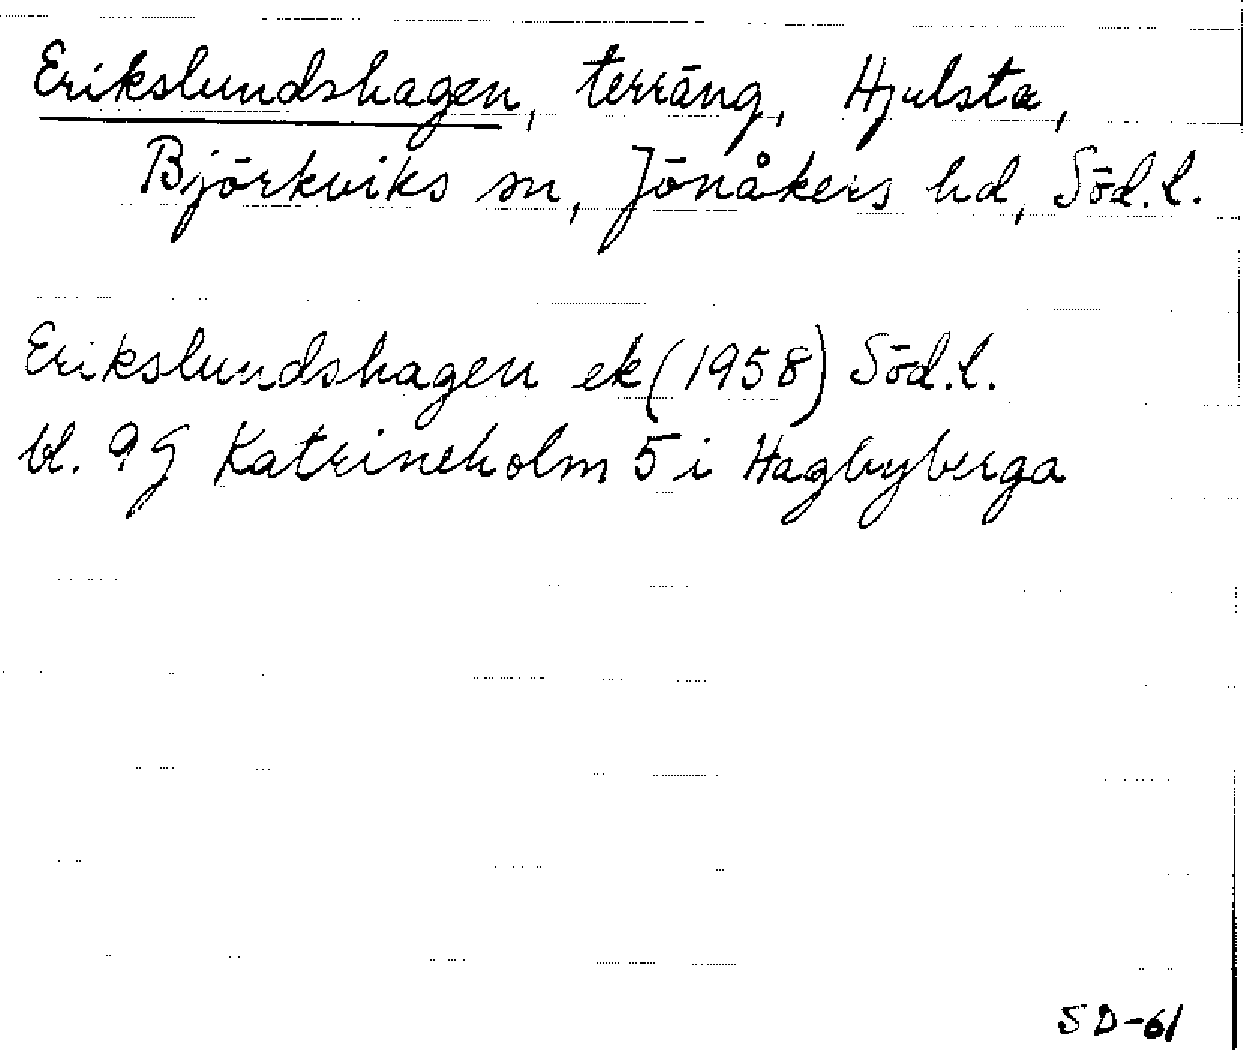 Erikslundshagen, terräng, Hjulsta,
Björkviks sn, Jönåkers hd, Söd.l.
Erikslundshagen ek (1958) Söd.l.
bl. 9G Katrineholm 5i Hagbyberga
SD-61